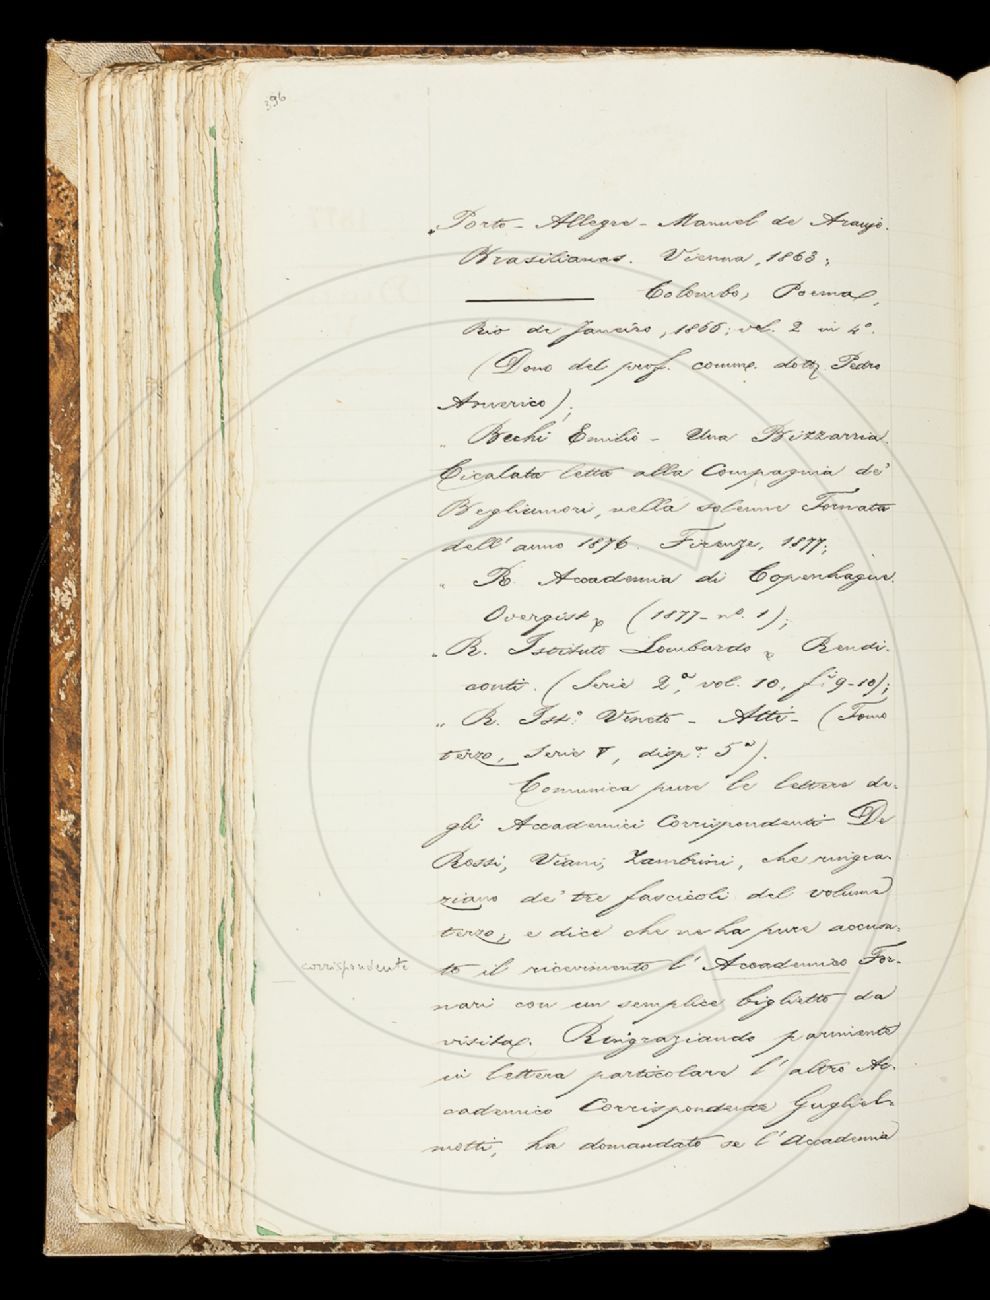 396
„ Porto-Allegre - Manuel de Araujo.
Brasilianas. Vienna, 1863;
——— Colombo, Poema,
Rio de Janeiro, 1866; vol. 2 in 4º.
(Dono del prof. comm. dott. Pedro
Americo);
„ Bechi Emilio - Una Bizzarria.
Cicalata letta alla Compagnia de'
Begliumori, nella solenne Tornata
dell'anno 1876. Firenze, 1877;
„ R. Accademia di Copenhague.
Oversigt (1877 - nº. 1);
„ R. Istituto Lombardo, Rendi-
conti. (Serie 2ª, vol. 10, f.i 9-10);
„ R. Ist.º Veneto - Atti - (Tomo
terzo, Serie V, disp.ª 5ª).
Comunica pure le lettere de-
gli Accademici Corrispondenti De
Rossi, Viani, Zambrini, che ringra-
ziano de' tre fascicoli del volume
terzo; e dice che ne ha pure accusa-
corrispondente
to il ricevimento l'Accademico For-
nari con un semplice biglietto da
visita. Ringraziando parimente
in lettera particolare l'altro Ac-
cademico Corrispondente Gugliel-
motti, ha domandato se l'Accademia